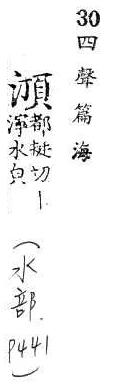 30四聲篇海
都挺切丨
濘水皃
（水部.P441）